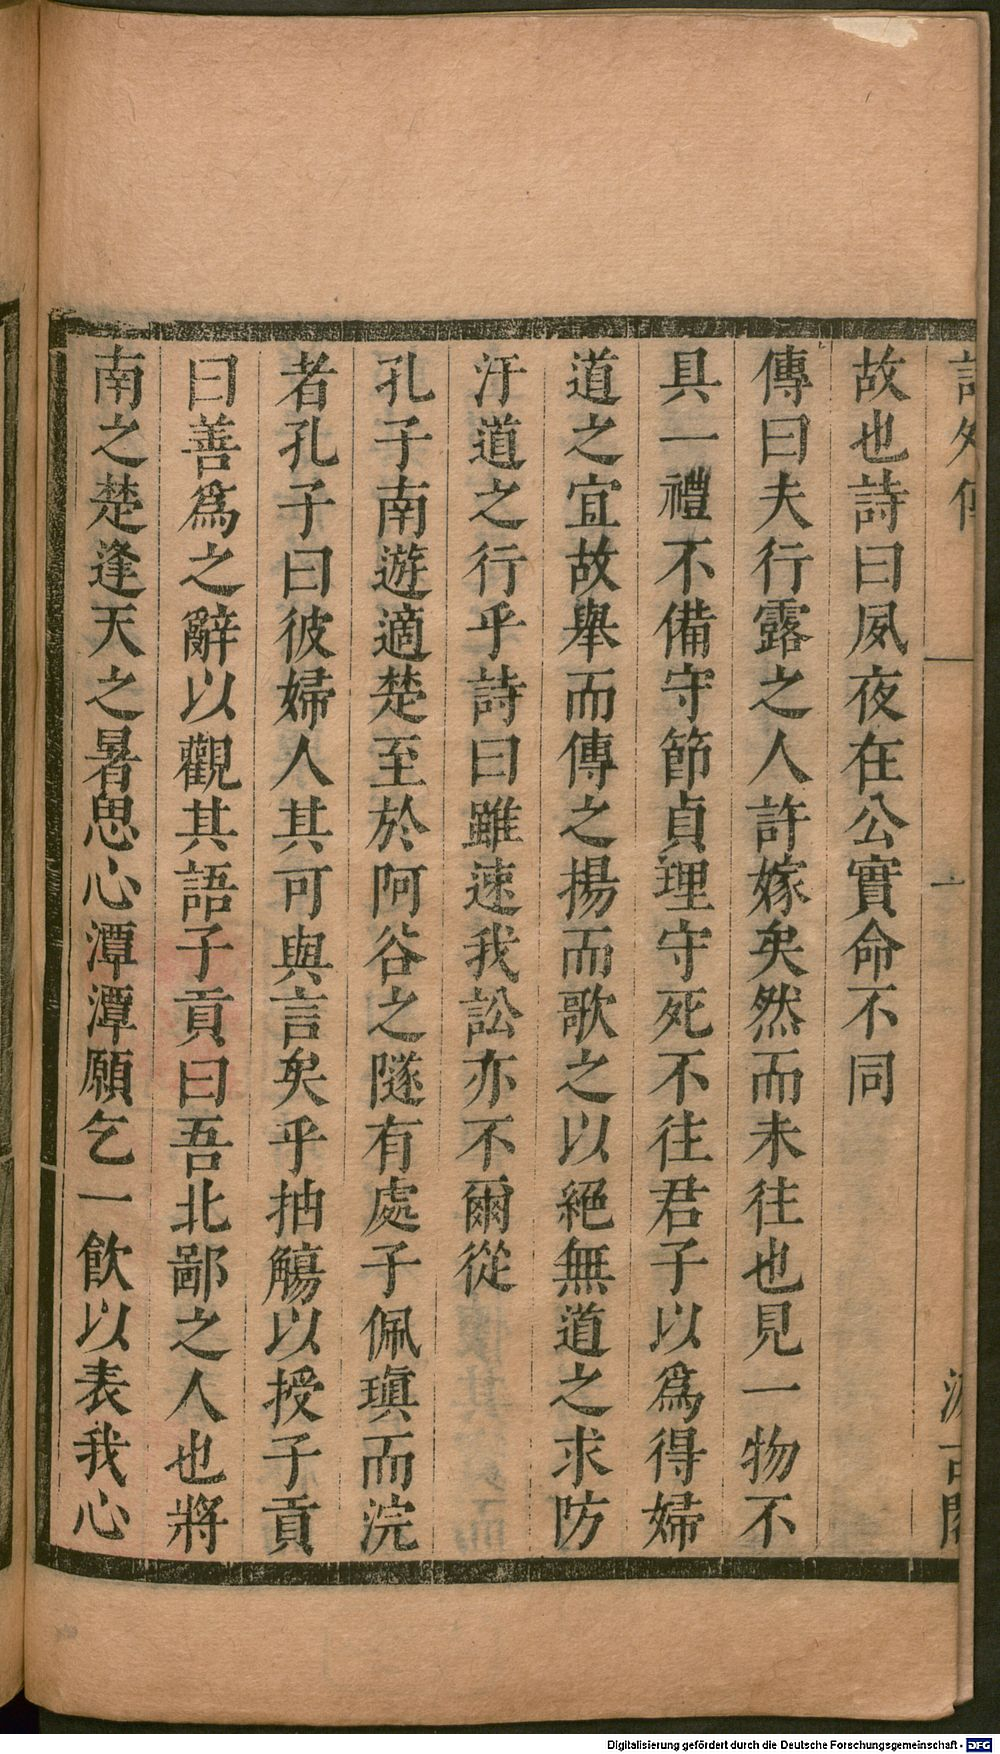 故也詩曰夙夜在公實命不同
傳曰夫行露之人許嫁矣然而未往也見一物不
具一禮不備守節貞理守死不往君子以爲得婦
道之宜故舉而傳之揚而歌之以絕無道之求防
汙道之行乎詩曰雖速我訟亦不爾從
孔子南遊適楚至於阿谷之隧有處子佩瑱而浣
者孔子曰彼婦人其可與言矣乎抽觴以授子貢
曰善爲之辭以觀其語子貢曰吾北鄙之人也將
南之楚逢天之暑思心潭潭願乞一飲以表我心
Digitalisierung gefördert durch die Deutsche Forschungsgemeinschaft - DFG